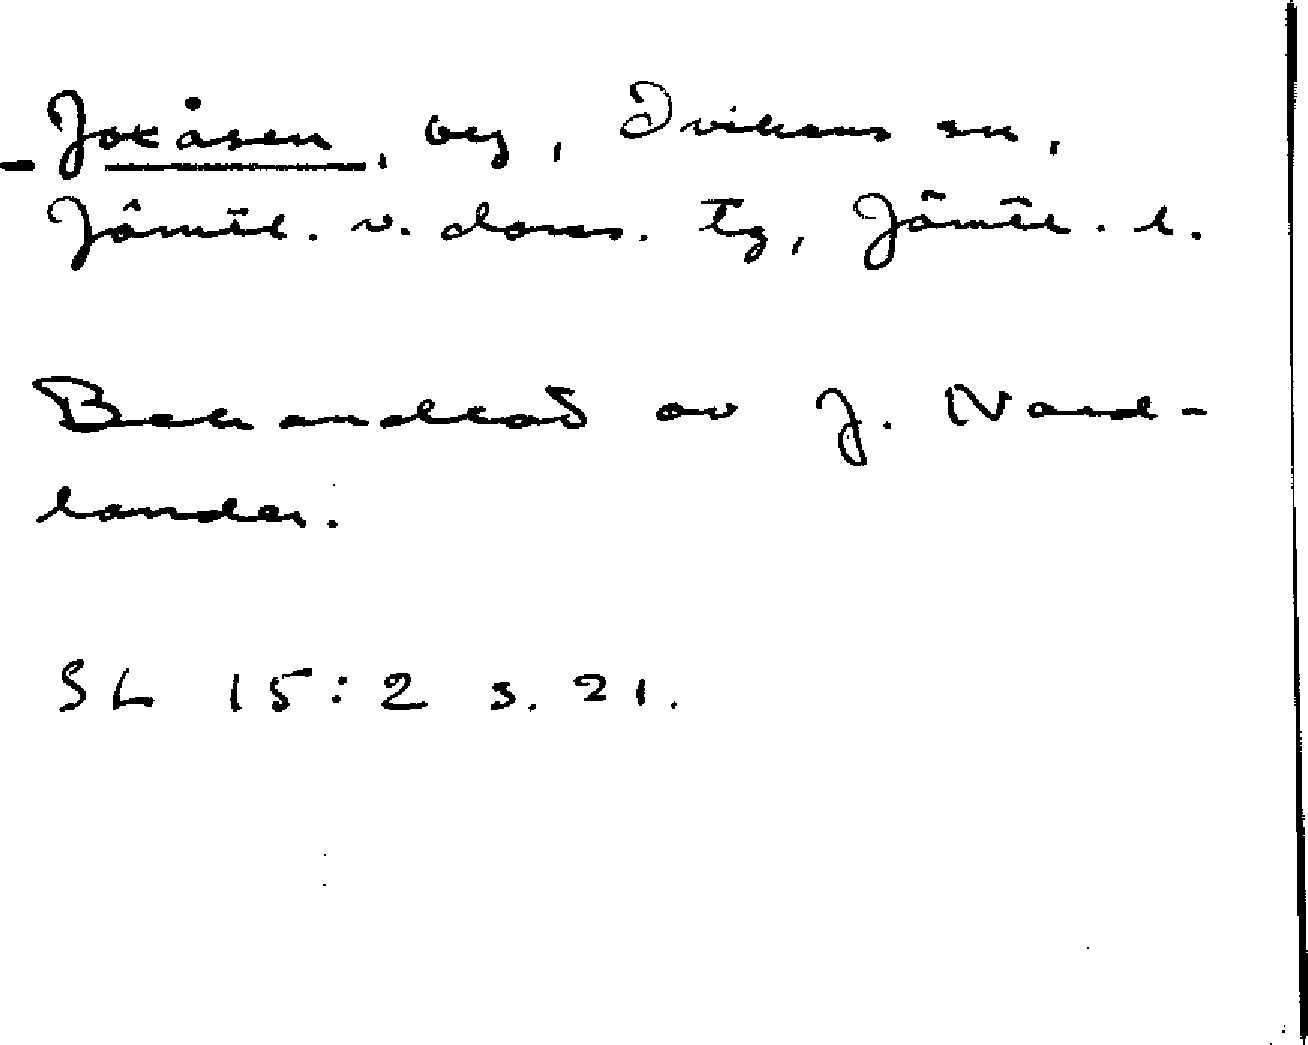 Jokåsen, by, Ovikens sn,
Jämtl. v. doms. tg, Jämtl. l.
Behandlad av J. Nord-
lander.
SL 15:2 s. 21.